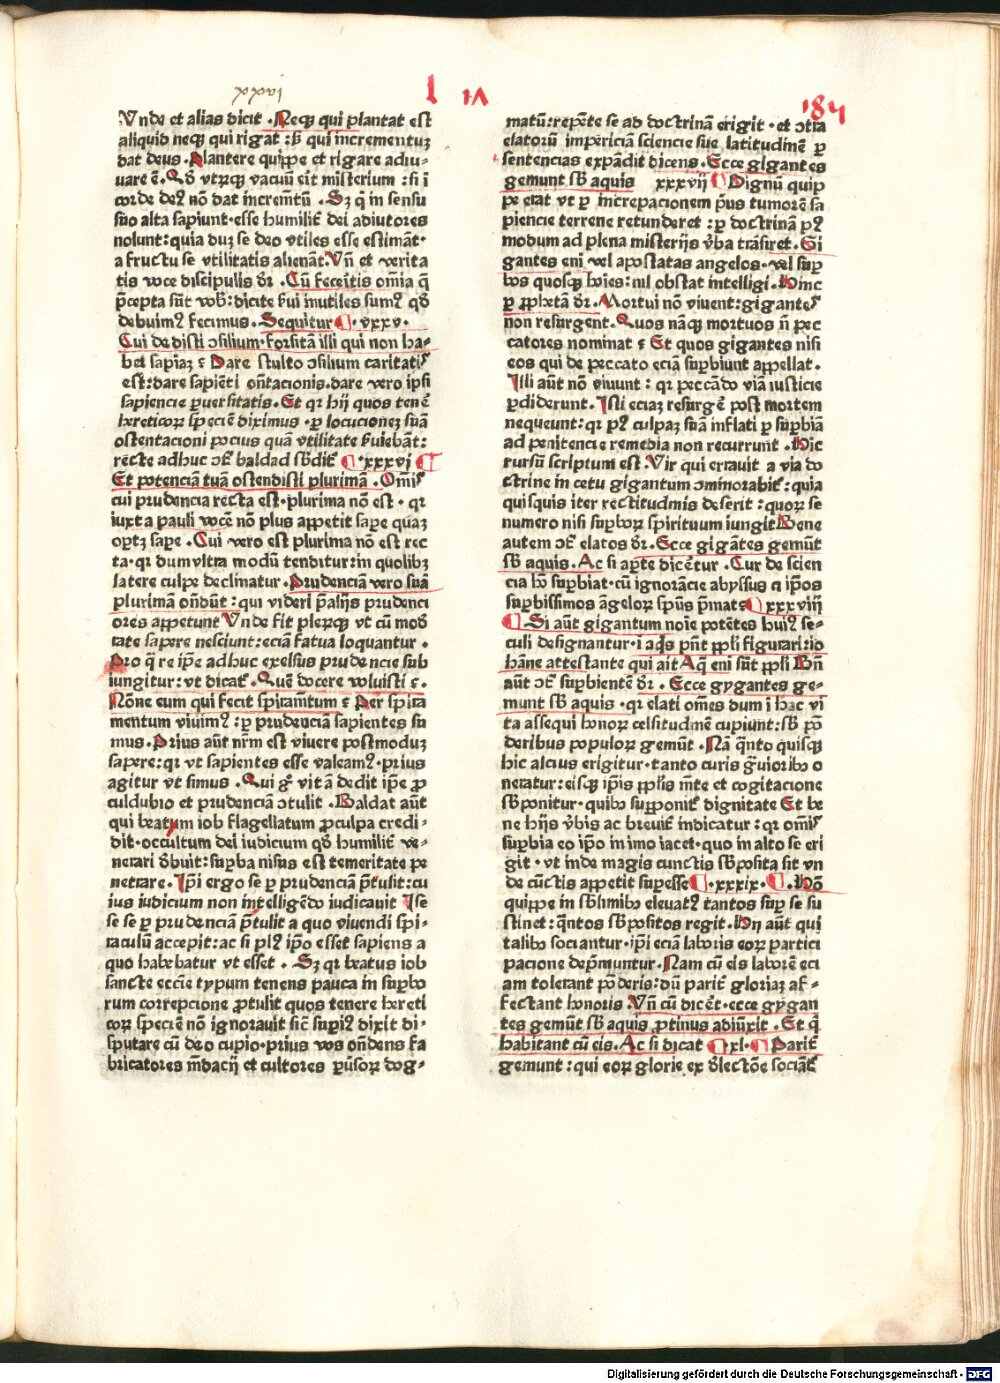 xxvi
l
184
Vnde et alias dicit · Neqꝫ qui plantat est
aliquid neqꝫ qui rigat : sꝫ qui incrementuꝫ
dat deus · Plantere quippe et rigare adiu-
uare ē · Qḋ vtrꝫqꝫ vacuū eit misterium : si ī
corde deꝰ nō dat incremētū · Sꝫ qͥ in sensu
suo alta sapiunt · esse humilit̄ dei adiutores
nolunt : quia duꝫ se deo vtiles esse estimāt ·
a fructu se vtilitatis alienāt. Vn̄ et verita
tis voce discipulis dr̄ · Cū feceritis om̄ia q̄
p̄cepta sūt vob̄ : dicite ẜui inutiles sumꝰ qḋ
debuimꝰ fecimus · Sequitur ¶ · xxxv ·
Cui dedisti ↄsilium · forsitā illi qui non ha-
bet sapiaꝫ ⁊ Dare stulto ↄsilium caritatis
est : dare sapiēti on̄tacionis. dare vero ipsi
sapiencie ꝑuersitatis · Et qꝛ hij quos tenē
hereticoꝝ sp̄eciē diximus · ꝑ locucioneꝫ suā
ostentacioni pocius quā vtilitate ẜuiebāt :
recte adhuc ↄt̄ baldad sb̄dit̄ ¶ · xxxvj ¶
Et potenciā tuā ostendisti plurimā · Om̄is
cui prudencia recta est · plurima nō est · qꝛ
iuxta pauli vocē nō plus appetit sape quaꝫ
optꝫ sape · Cui vero est plurima nō est rec
ta · qꝛ dum vltra modū tenditur : in quolibꝫ
latere culpe declinatur · Prudenciā vero suā
plurimā on̄dūt : qui videri p̄ alijs prudenci
ores appetunt Vnde fit pleꝛqꝫ vt cū mod̄
rate sapere nesciunt : eciā fatua loquantur ·
Pro q̄ re ip̄e adhuc exelsus prudencie sub
iungitur : vt dicat̄ · Quē docere voluisti ⁊ ·
Nōne eum qui fecit spiramētum ⁊ Per spira
mentum viuimꝰ : ꝑ prudenciā sapientes su
mus · Prius aūt nr̄m est viuere postmoduꝫ
sapere : qꝛ vt sapientes esse valeamꝰ · prius
agitur vt simus · Qui gͦ vitā dedit ip̄e ꝓ
culdubio et prudenciā ↄtulit · Baldat aūt
qui beatum iob flagellatum ꝓ culpa credi-
dit · occultum dei iudicium qḋ humilit̄ ve-
nerari d̄buit : suꝑba nisus est temeritate pe
netrare · Ip̄i ergo se ꝑ prudenciā p̄tulit : cu
ius iudicium non intelligēdo iudicauit Ise
se se ꝑ prudenciā p̄tulit a quo viuendi spi-
raculū accepit : ac si plꝰ ip̄o esset sapiens a
quo habebatur vt esset · Sꝫ qꝛ beatus iob
sancte eccie typum tenens pauca in suꝑbo
rum correpcione ꝓtulit quos tenere hereti
coꝝ speciē nō ignorauit sic̄ supiꝰ dixit di-
sputare cū deo cupio · prius vos on̄dens fa
bricatores m̄dacij et cultores ꝑuersoꝝ dog-
matū : repēte se ad doctrinā erigit · et ↄtra
elatorū imperciā sciencie sue latitudinē ꝑ
sentencias expādit dicens · Ecce gigantes
gemunt sb̄ aquis xxxvij ¶ Dignū quip
pe erat vt ꝑ increpacionem p̄us tumorē sa
piencie terrene retunderet : ꝑ doctrinā pꝰ
modum ad plena misterijs v̄ba trāsiret · Gi
gantes eni vel apostatas angelos · vel suꝑ
bos quosqꝫ hoies : nil obstat intelligi · Hinc
ꝑ ꝓphetā dr̄ · Mortui nō viuent : gigantes
non resurgent · Quos nāqꝫ mortuos n̄ pec
catores nominat ⁊ Et quos gigantes nisi
eos qui de peccato eciā suꝑbiunt appellat ·
Illi aūt nō viuunt : qꝛ peccādo viā iusticie
ꝑdiderunt · Isti eciaꝫ resurgē post mortem
nequeunt : qꝛ pꝰ culpaꝫ suā inflati ꝑ suꝑbiā
ad penitencie remedia non recurrunt · Hic
rursū scriptum est · Vir qui errauit a via do
ctrine in cetu gigantum ↄminorabit̄ : quia
quisquis iter rectitudinis deserit : quoꝝ se
numero nisi suꝑboꝝ spirituum iungit Bene
autem ↄt̄ elatos dr̄ · Ecce gigātes gemūt
sb̄ aquis · Ac si aꝑte dicētur · Cur de scien
cia hō suꝑbiat · cū ignorācie abyssus a ip̄os
suꝑbissimos āgeloꝝ sp̄us p̄mat ¶ xxxviij
¶ Si aūt gigantum noīe potētes huiꝰ se-
culi designantur · ī aq̄s pn̄t ppl̄i figurari : io
hāne attestante qui ait Aq̄ eni sūt ppl̄i Bn̄
aūt ↄt̄ suꝑbientē dr̄ · Ecce gygantes ge-
munt sb̄ aquis · qꝛ elati om̄es dum ī hac vi
ta assequi honoꝝ celsitudinē cupiunt : sb̄ pō
deribus populoꝝ gemūt · Nā q̄nto quisqꝫ
hic alcius erigitur · tanto curis ḡuiorib̄ o
neratur : eisqꝫ ip̄is ppl̄is m̄te et cogitacione
sb̄ponitur · quib̄ supponit̄ dignitate Et be
ne hijs v̄bis ac breuit̄ indicatur : qꝛ om̄is
suꝑbia eo ip̄o in imo iacet · quo in alto se eri
git · vt inde magis cunctis sb̄posita sit vn
de cūctis appetit supesse ¶ · xxxix · ¶ · Hō
quippe in sb̄limib̄ eleuatꝰ tantos suꝑ se su
stinet : q̄ntos sb̄positos regit · Hij aūt qui
talib̄ sociantur · ip̄i eciā laboris eoꝝ partici
pacione dep̄muntur · Nam cū eis laborē eci
am tolerant pōderis : dū parit̄ gloriaꝫ af-
fectant honoris · Vn̄ cū dicēt · ecce gygan
tes gemūt sb̄ aquis ꝓtinus adiūxit · Et q̄
habitant cū eis · Ac si dicat ¶ xl · ¶ Parit̄
gemunt : qui eoꝝ glorie ex d̄lectōe sociāt̄
Digitalisierung gefördert durch die Deutsche Forschungsgemeinschaft - DFG